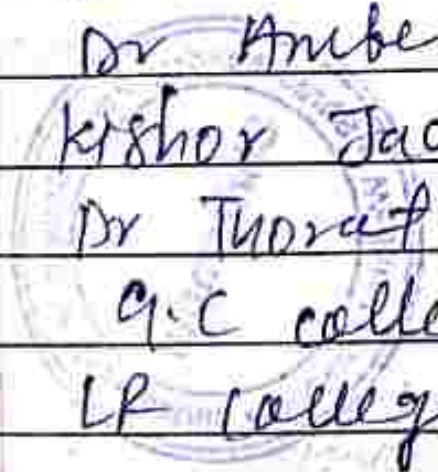 Dr Ambe
Kishor Jac
Dr Thorat
G.C colle
LR colleg